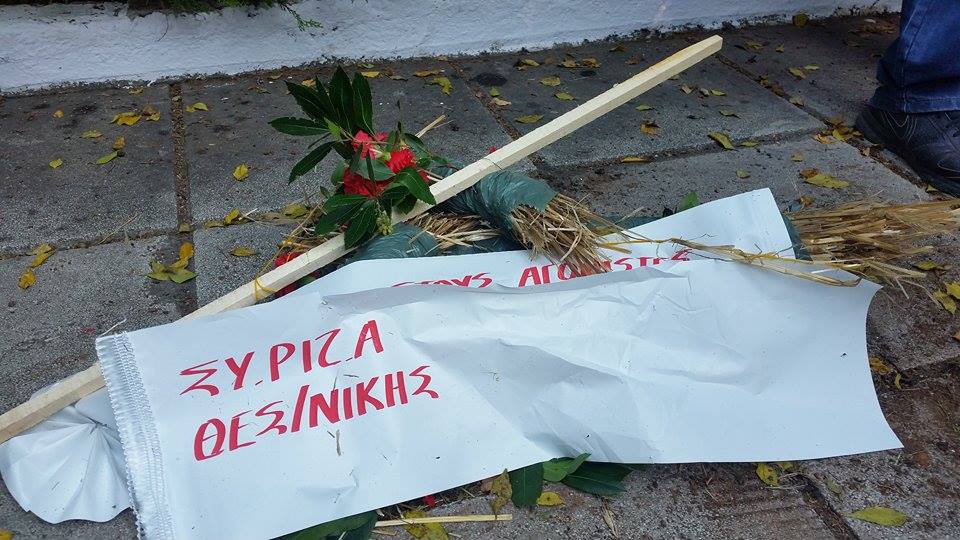 ΣΤΟΥΣ ΑΓΩΝΙΣΤΕΣ
ΣΥ.ΡΙΖ.Α
ΘΕΣ/ΝΙΚΗΣ